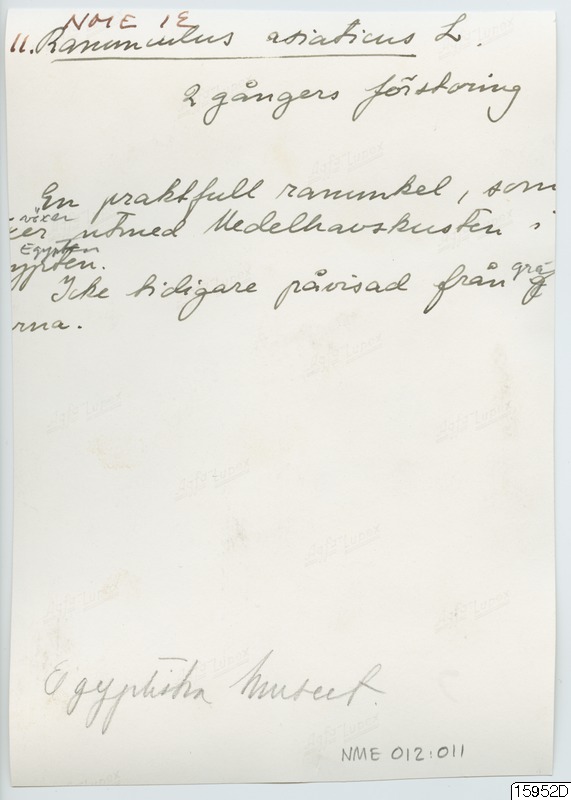 NME 12
11. Ranunculus asiaticus L.
2 gångers förstoring
En praktfull ranunkel, som
växer
xer utmed Medelhavskusten i
Egypten
ypten.
Icke tidigare påvisad från grä
rna.
Agfa Lupex
Egyptiska Museet.
NME 012:011
15952D